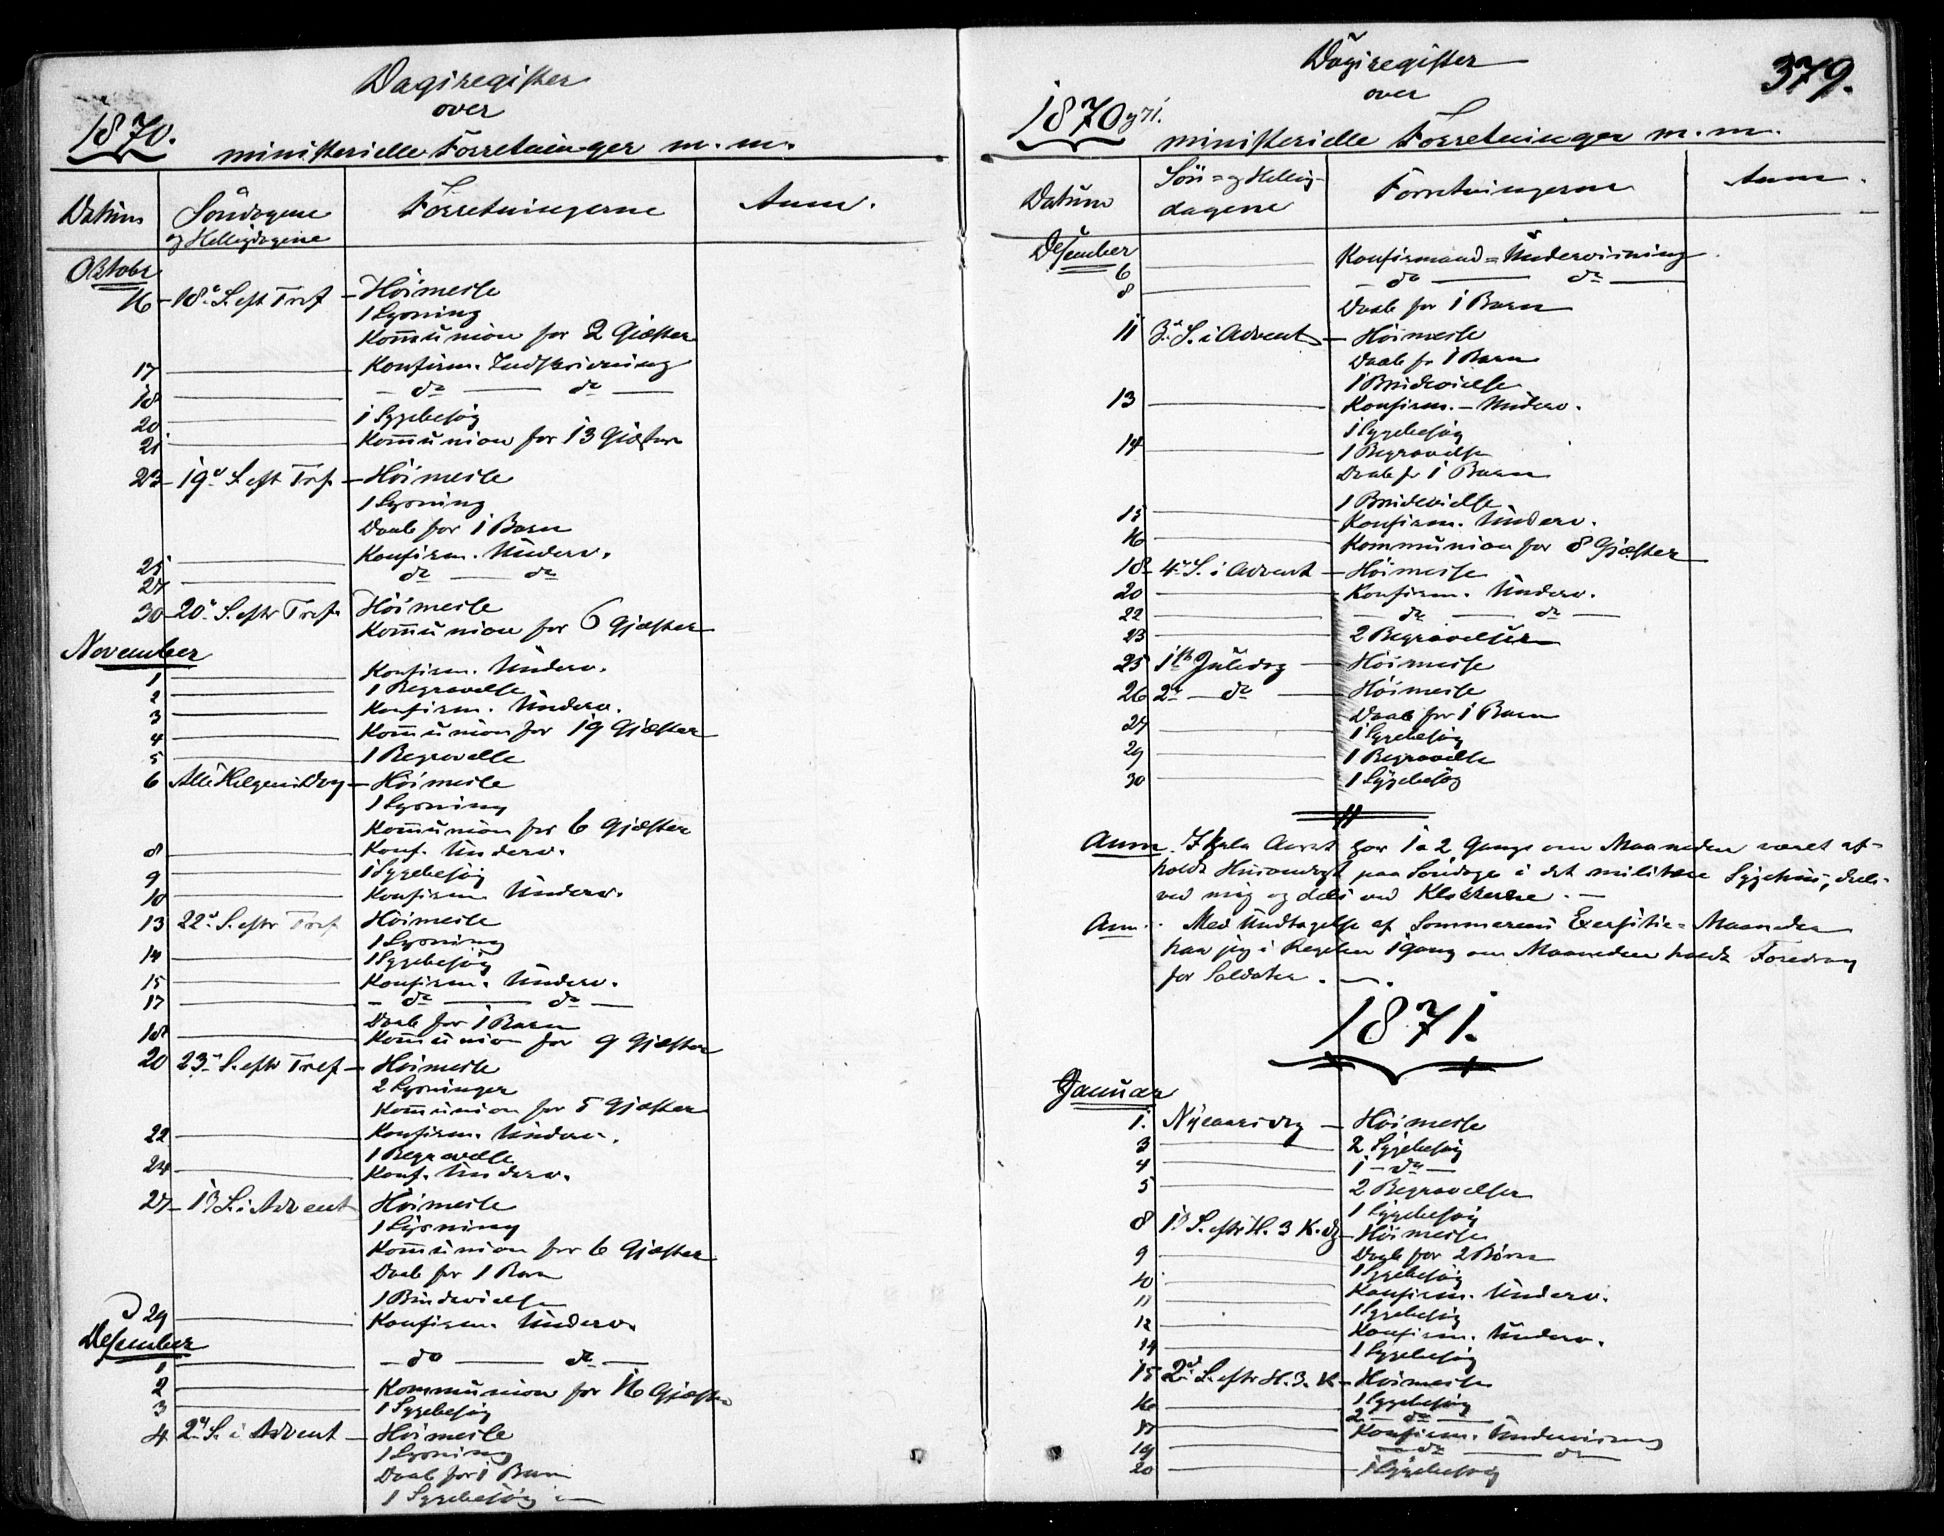 Dagsregister
over
1870.
ministerielle Forretninger m. m.
Datum
Søndagene
og Helligdagene
Forretningerne
Anm.
Oktober
16 18de S. eft Tref Höimesse
1 Lysning
Kommunion for 2 Gjæster
17 Konfirm. Indskrivning
18 do do
20 1 Sygebesøg
21 Kommunion for 13 Gjæster
23 19de S. eft Tref Höimesse
1 Lysning
Daab for 1 Barn
25 Konfirm. Underv.
27 do do
30 20de S. eftr Tref. Höimesse
Kommunion for 6 Gjæster
November
1 Konfirm. Underv.
2 1 Begravelse
3 Konfirm. Underv.
4 Kommunion for 19 Gjæster
5 1 Begravelse
6 Alle Helgensdag Höimesse
1 Lysning
Kommunion for 6 Gjæster
8 Konf. Underv.
9 1 Sygebesøg
10 Konfirm Underv.
13 22de S. eftr Tref Höimesse
1 Lysning
14 1 Sygebesøg
15 Konfirm. Underv.
17 do do
Daab for 1 Barn
18 Kommunion for 9 Gjæster
20 23de S. eftr Tref Höimesse
2 Lysninger
Kommunion for 5 Gjæster
22 Konfirm. Underv.
1 Begravelse
24 Konf. Underv.
27 1ste S. i Advent Höimesse
1 Lysning
Kommunion for 6 Gjæster
Daab for 1 Barn
1 Brudevielse
29 Konfirm. Underv.
Desember
1 do do
2 Kommunion for 16 Gjæster
3 1 Sygebesøg
4 2den S. i Advent Höimesse
1 Lysning
Daab for 1 Barn
1 Sygebesøg
Dagsregister
over
379.
1870 og 71.
ministerielle Forretninger m. m.
Datum
Søn= og Hellig-
dagene
Forretningerne
Anm.
Desember
6 Konfirmand=Underviisning
8 do do
Daab for 1 Barn
11 3die S. i Advent Höimesse
Daab fr 1 Barn
1 Brudevielse
13 Konfirm.-Underv.
1 Sygebesøg
14 1 Begravelse
Daab fr 1 Barn
1 Brudevielse
15 Konfirm. Underv.
16 Kommunion for 8 Gjæster
18 4de S. i Advent Höimesse
20 Konfirm. Underv.
22 do do
23 2 Begravelser
25 1ste Juledag Höimesse
26 2den do Höimesse
Daab for 1 Barn
27 1 Sygebesøg
29 1 Begravelse
30 1 Sygebesøg
Anm. I hele Aaret har 1 a 2 Gange om Maaneden været af-
holdt Husandagt paa Søndage i det militære Sygehus, dels
ved mig og dels ved Klokkerne.
Anm. Med Undtagelse af Sommerens Exersitie=Maaneder
har jeg i Regelen 1 gang om Maaneden holdt Foredrag
for Soldater.
1871.
Januar
1. Nytaarsdag Höimesse
3 2 Sygebesøg
4 1 do
5 2 Begravelser
1 Sygebesøg
8 1ste S. eftr H. 3 K. dg Höimesse
9 Daab for 2 Børn
10 1 Sygebesøg
Konfirm. Underv.
11 1 Sygebesøg
12 Konfirm. Underv.
14 1 Sygebesøg
15 2den S. eftr H. 3. K. Höimesse
16 1 Sygebesøg
2 do
17 Konfirm. Underviisning
19 do do
20 1 Sygebesøg